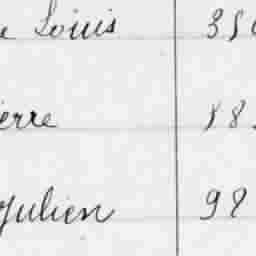 e Louis 35
erre 182
Julien 98